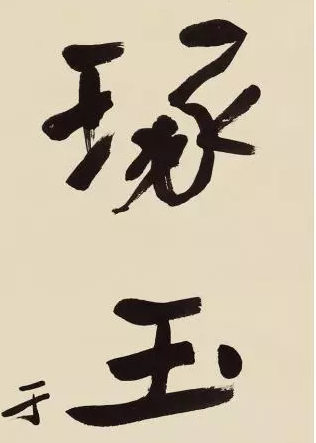 琢玉
于